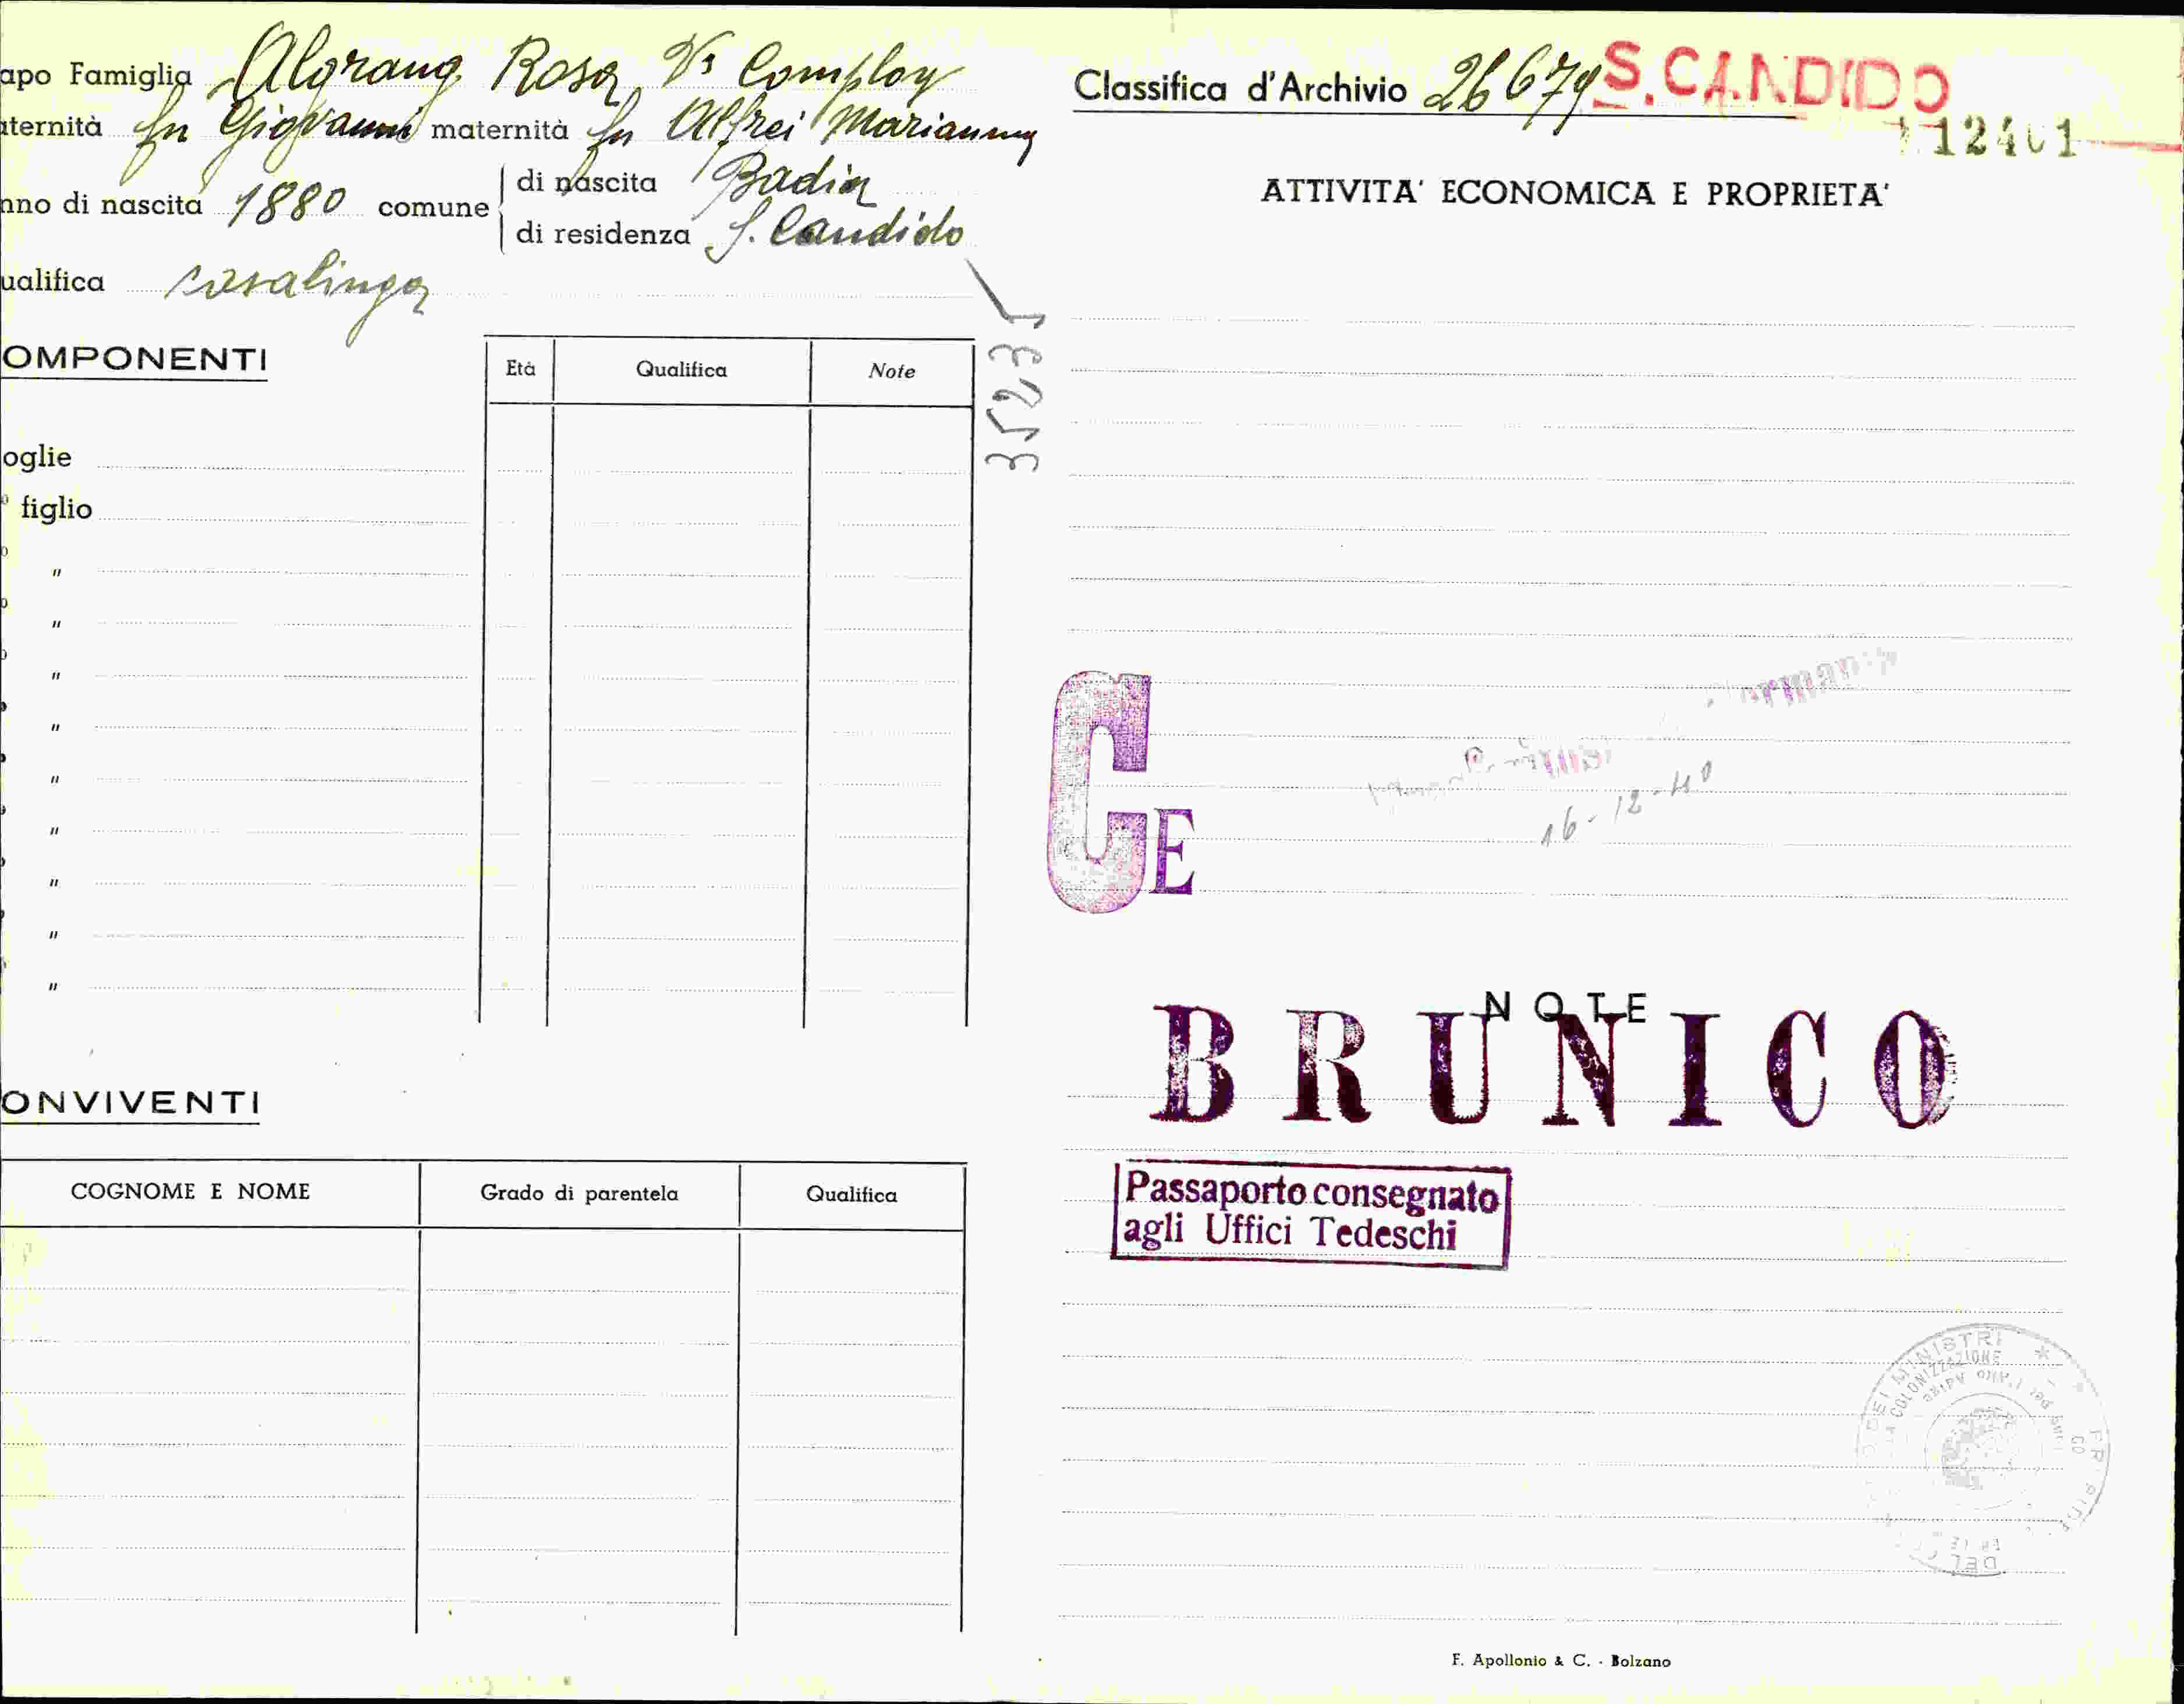 apo Famiglia Algrang Rosa Va Comploy
aternità fu Giovanni maternità fu Alfrei Marianna
nno di nascita 1880 comune di nascita Badia
di residenza S. Candido
ualifica casalinga
35235
OMPONENTI
Età Qualifica Note
oglie
figlio
"
"
"
"
"
"
"
"
"
ONVIVENTI
COGNOME E NOME Grado di parentela Qualifica
Classifica d'Archivio 26679 S. CANDIDO
12401
ATTIVITA' ECONOMICA E PROPRIETA'
16-12-40
CE
NOTE
BRUNICO
Passaporto consegnato
agli Uffici Tedeschi
DEI MINISTRI
COLONIZZAZIONE
F. Apollonio & C. - Bolzano